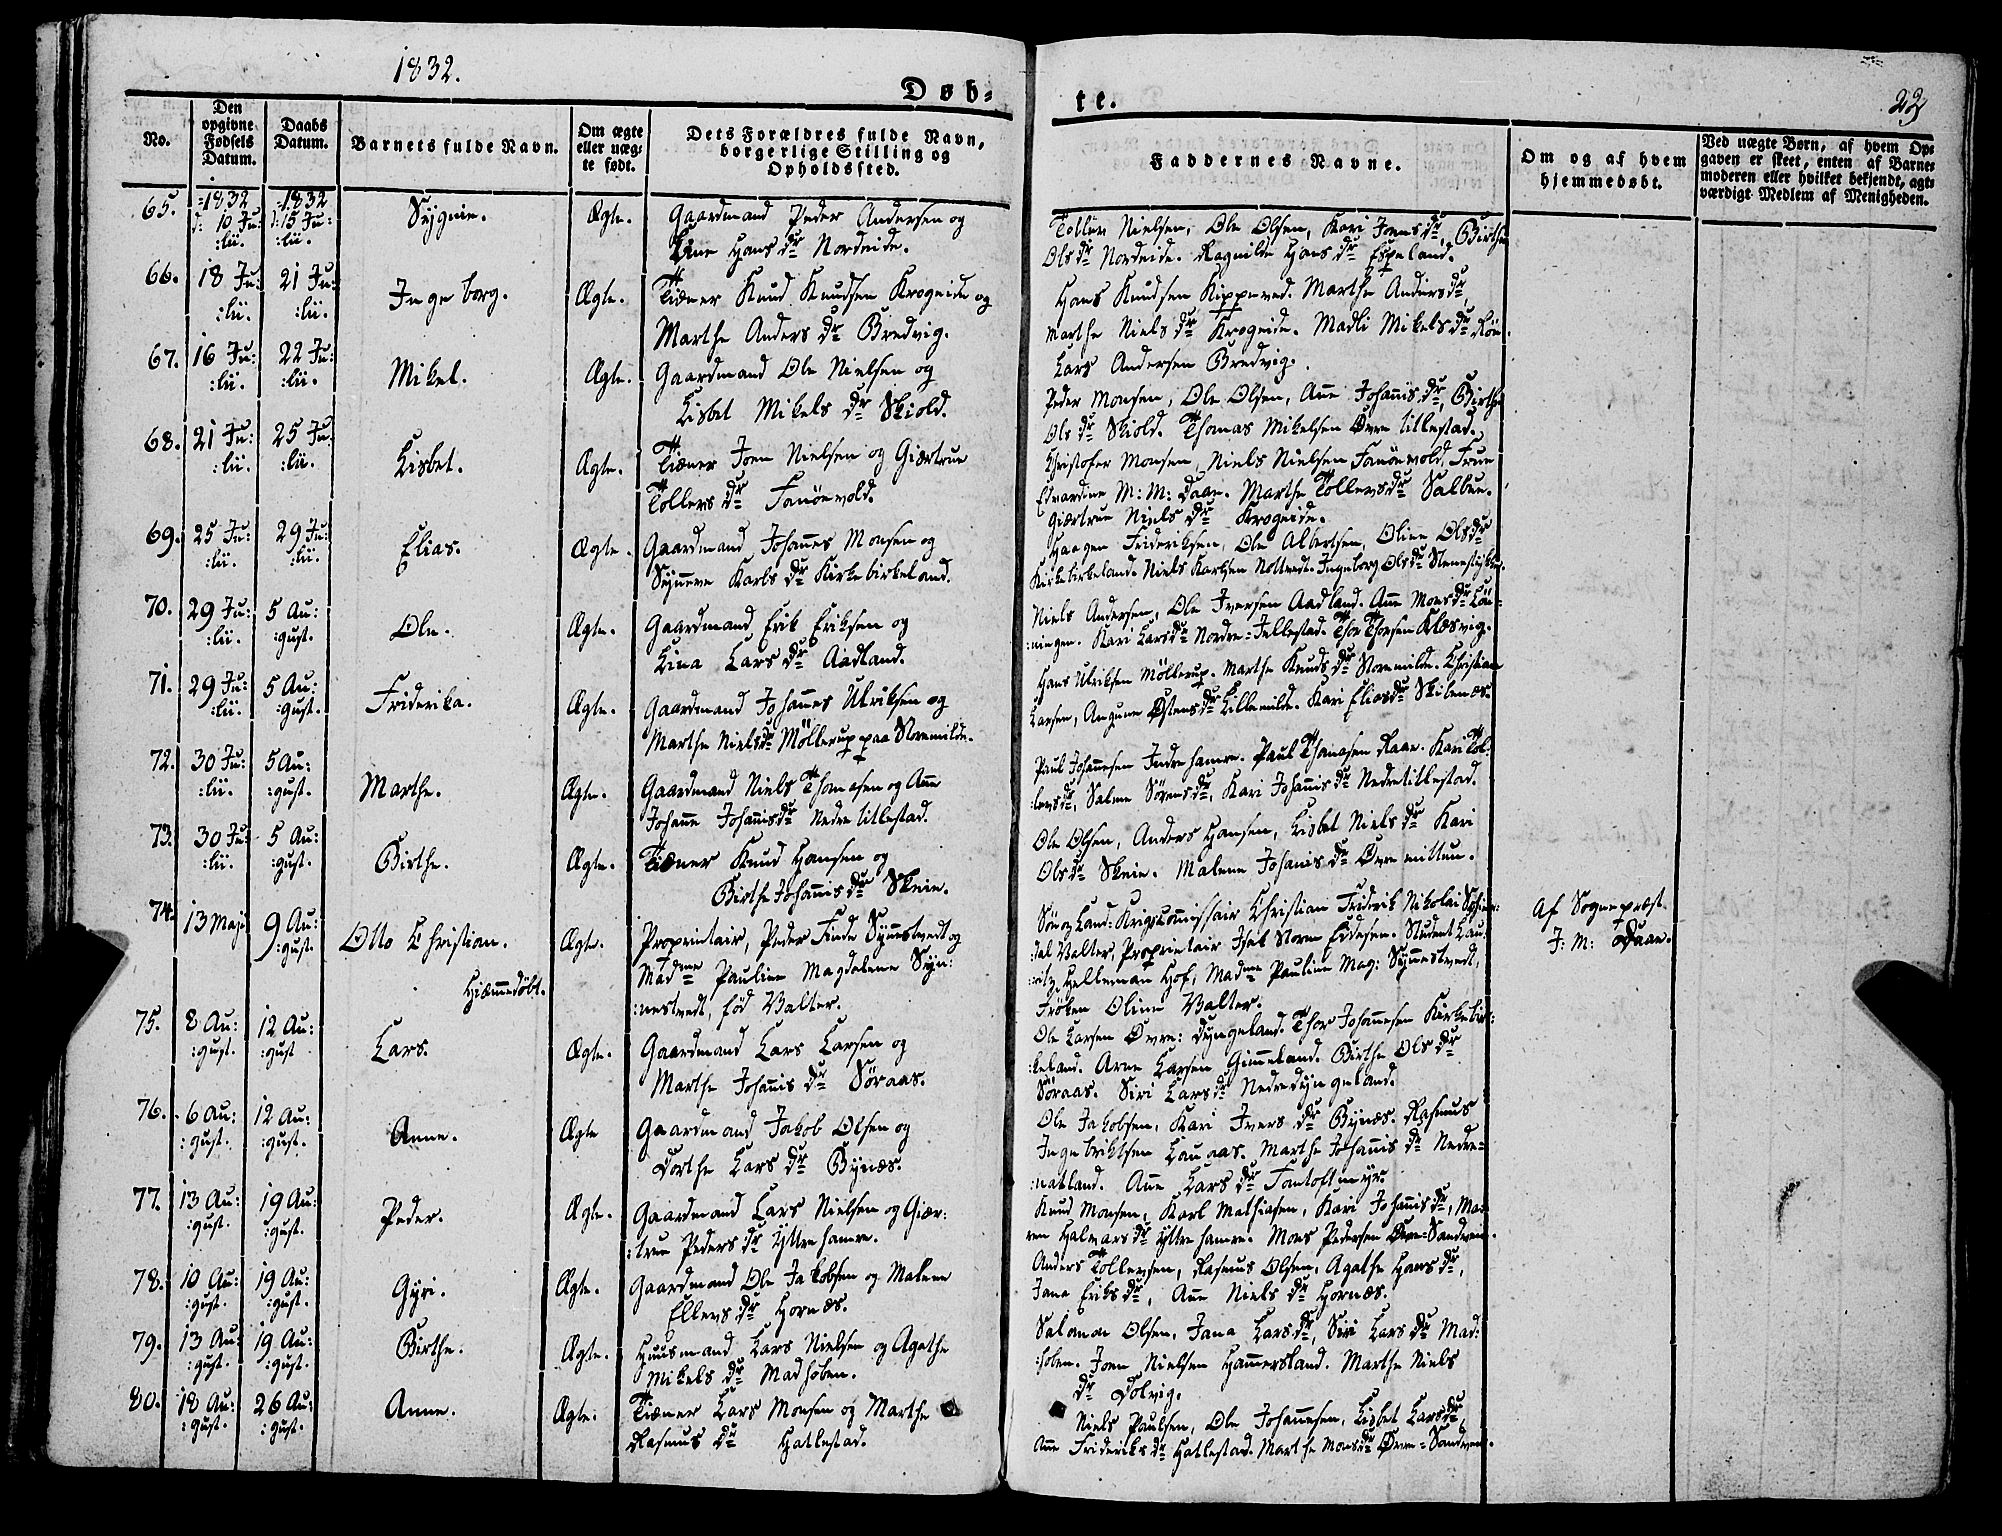 1832.
Døb=
te.
23
No.
Den opgivne Fødsels Datum.
Daabs Datum.
Barnets fulde Navn.
Om ægte eller uægte født.
Dets Forældres fulde Navn, borgerlige Stilling og Opholdssted.
Faddernes Navne.
Om og af hvem hjemmedøbt.
Ved uægte Børn, af hvem Opgaven er skeet, enten af Barnemoderen eller hvilket bekjendt, agtværdigt Medlem af Menigheden.
65. 1832 d: 10 Ju:lii. 1832 d: 15 Ju:lii. Sygnie. Ægte. Gaardmand Peder Andersen og
Hans dr Nordeide.
Tollev Nielsen, Ole Olsen, Kari Joens dr, Birthe
Ols dr Nordeide. Ragnilde Hans dr Espeland.
66. 18 Ju:lii. 21 Ju:lii. Ingeborg. Ægte. Tiæner Knud Knudsen Krogeide og
Marthe Anders dr Bredvig.
Hans Knudsen Marthe Anders dr,
Marthe Niels dr Krogeide. Madli Mikels dr
Lars Andersen Bredvig.
67. 16 Ju:lii. 22 Ju:lii. Mikel. Ægte. Gaardmand Ole Nielsen og
Lisbet Mikels dr Skiold.
Peder Monsen, Ole Olsen, Ane Johanis dr, Birthe
Ols dr Skiold. Thomas Mikelsen Øvre titlestad.
68. 21 Ju:lii. 25 Ju:lii. Lisbet. Ægte. Tiæner Joen Nielsen og Giærtrue
Tollevs dr Fanöevold.
Christofer Monsen, Niels Nielsen Fanöevold, Frue
Edvardine M: M: Daae. Marthe Tollevs dr Salbue.
Giærtrue Niels dr Krogeide.
69. 25 Ju:lii. 29 Ju:lii. Elias. Ægte. Gaardmand Johanes Monsen og
Synneve Karls dr Kirkebirkeland.
Haagen Frideriksen, Ole Albertsen, Oline Ols dr
Kirkebirkeland. Niels Karlsen Ingeborg Ols dr
70. 29 Ju:lii. 5 Au:gust. Ole. Ægte. Gaardmand Erik Eriksen og
Lars dr Aadland.
Niels Andersen, Ole Iversen Aadland. Ane Mons dr Lön
:ningen. Kari Lars dr Nordre=Titlestad. Thor Thorsen
71. 29 Ju:lii. 5 Au:gust. Friderika. Ægte. Gaardmand Johanes Ulriksen og
Marthe Niels dr Möllerup paa Storemilde.
Hans Ulriksen Möllerup. Marthe Knuds dr Storemilde. Christian
Larsen, Østens dr Lillemilde. Kari Elias dr
72. 30 Ju:lii. 5 Au:gust. Marthe. Ægte. Gaardmand Niels Thomasen og Ane
Johane Johanis dr Nedre titlestad.
Paul Johanesen Indrehamre. Paul Thomasen Raae. Kari Tol:
levs dr, Salme Sörens dr, Kari Johanis dr Nedretitlestad.
73. 30 Ju:lii. 5 Au:gust. Birthe. Ægte. Tiæner Knud Hansen og
Birthe Johanis dr Skeie.
Ole Olsen, Anders Hansen, Lisbet Niels dr Kari
Ols dr Skeie. Malene Johanis dr Øvre mittun.
74. 13 Maji 9 Au:gust. Otto Christian. Ægte. Proprietair, Peder Finde Synnestvedt og
Hiæmmedöbt.
Madme Pauline Magdalene Syn:
:nestvedt, föd Valter.
Söe og Land-Krigscommissair Christian Friderik Nikolai
Valter, Proprietair Student Lau:
Helleman Hof, Madme Pauline Mag: Synnestvedt,
Fröken Oline Valter.
Af Sognepræst.
J: M: Daae.
75. 8 Au:gust. 12 Au:gust Lars. Ægte. Gaardmand Lars Larsen og
Marthe Johanis dr Söraas.
Ole Larsen Øvre: dyngeland. Thor Johanesen Kirkebir:
keland. Arne Larsen Gimmeland. Birthe Ols dr
Söraas. Siri Lars dr Nedredyngeland.
76. 6 Au:gust. 12 Au:gust. Anne. Ægte Gaardmand Jakob Olsen og
Dorthe Lars dr Bynæs.
Ole Jakobsen, Kari Ivers dr Bynæs. Rasmus
Ingebriktsen Marthe Johanis dr Nedre=
:natland. Ane Lars dr Fantoftmyr.
77. 13 Au:gust. 19 Au:gust. Peder. Ægte. Gaardmand Lars Nielsen og Giær:
:true Peders dr Yttrehamre.
Knud Monsen, Karl Mathiasen, Kari Johanis dr, Ma:
ren Halvars dr Yttrehamre. Mons Pedersen Øvre=Sandven.
78. 10 Au:gust. 19 Au:gust. Gyri. Ægte. Gaardmand Ole Jakobsen og Malene
Ellevs dr Hornæs.
Anders Tollevsen, Rasmus Olsen, Agathe Hans dr,
Jana Eriks dr, Ane Niels dr Hornæs.
79. 13 Au:gust. 19 Au:gust. Birthe. Ægte. Huusmand Lars Nielsen og Agathe
Mikels dr Madhöben.
Salomon Olsen, Jana Lars dr, Siri Lars dr Mad:
:höben. Joen Nielsen Hammersland. Marthe Niels
dr Dolvig.
80. 18 Au:gust. 26 Au:gust. Anne. Ægte. Tiæner Lars Monsen og Marthe
Rasmus dr Hatlestad.
Niels Paulsen, Ole Johanesen, Lisbet Lars dr,
Ane Frideriks dr Hatlestad. Marthe Mons dr Øvre=Sandven.